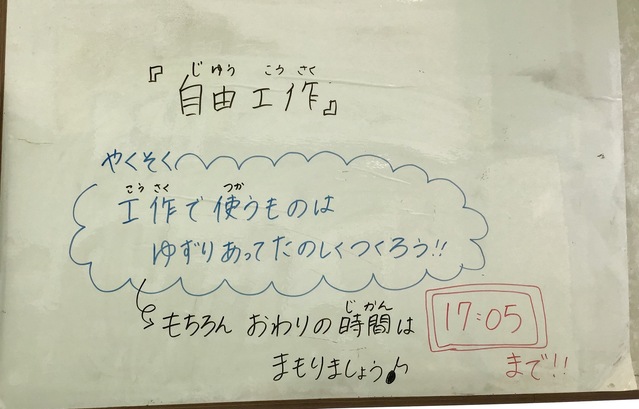 『自由工作』
じゆう こうさく
やくそく
こうさく つか
工作で使うものは
ゆずりあってたのしくつくろう!!
じかん
もちろん おわりの時間は
まもりましょう♪
17:05
まで!!